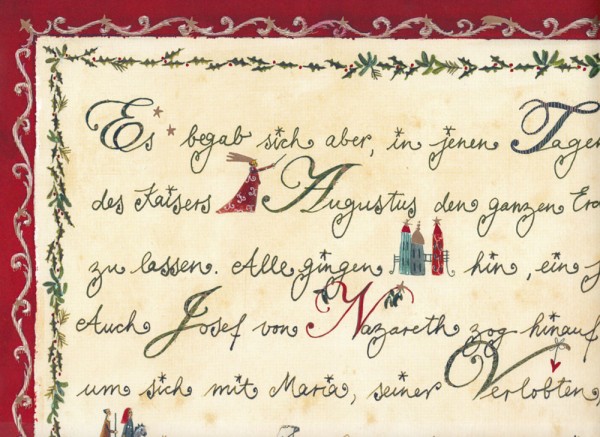 Es begab sich aber, in jenen Tagen
des Kaisers Augustus den ganzen Erd
zu lassen. Alle gingen hin, ein j
Auch Josef von Nazareth zog hinauf
um sich mit Maria, seiner Verlobten,